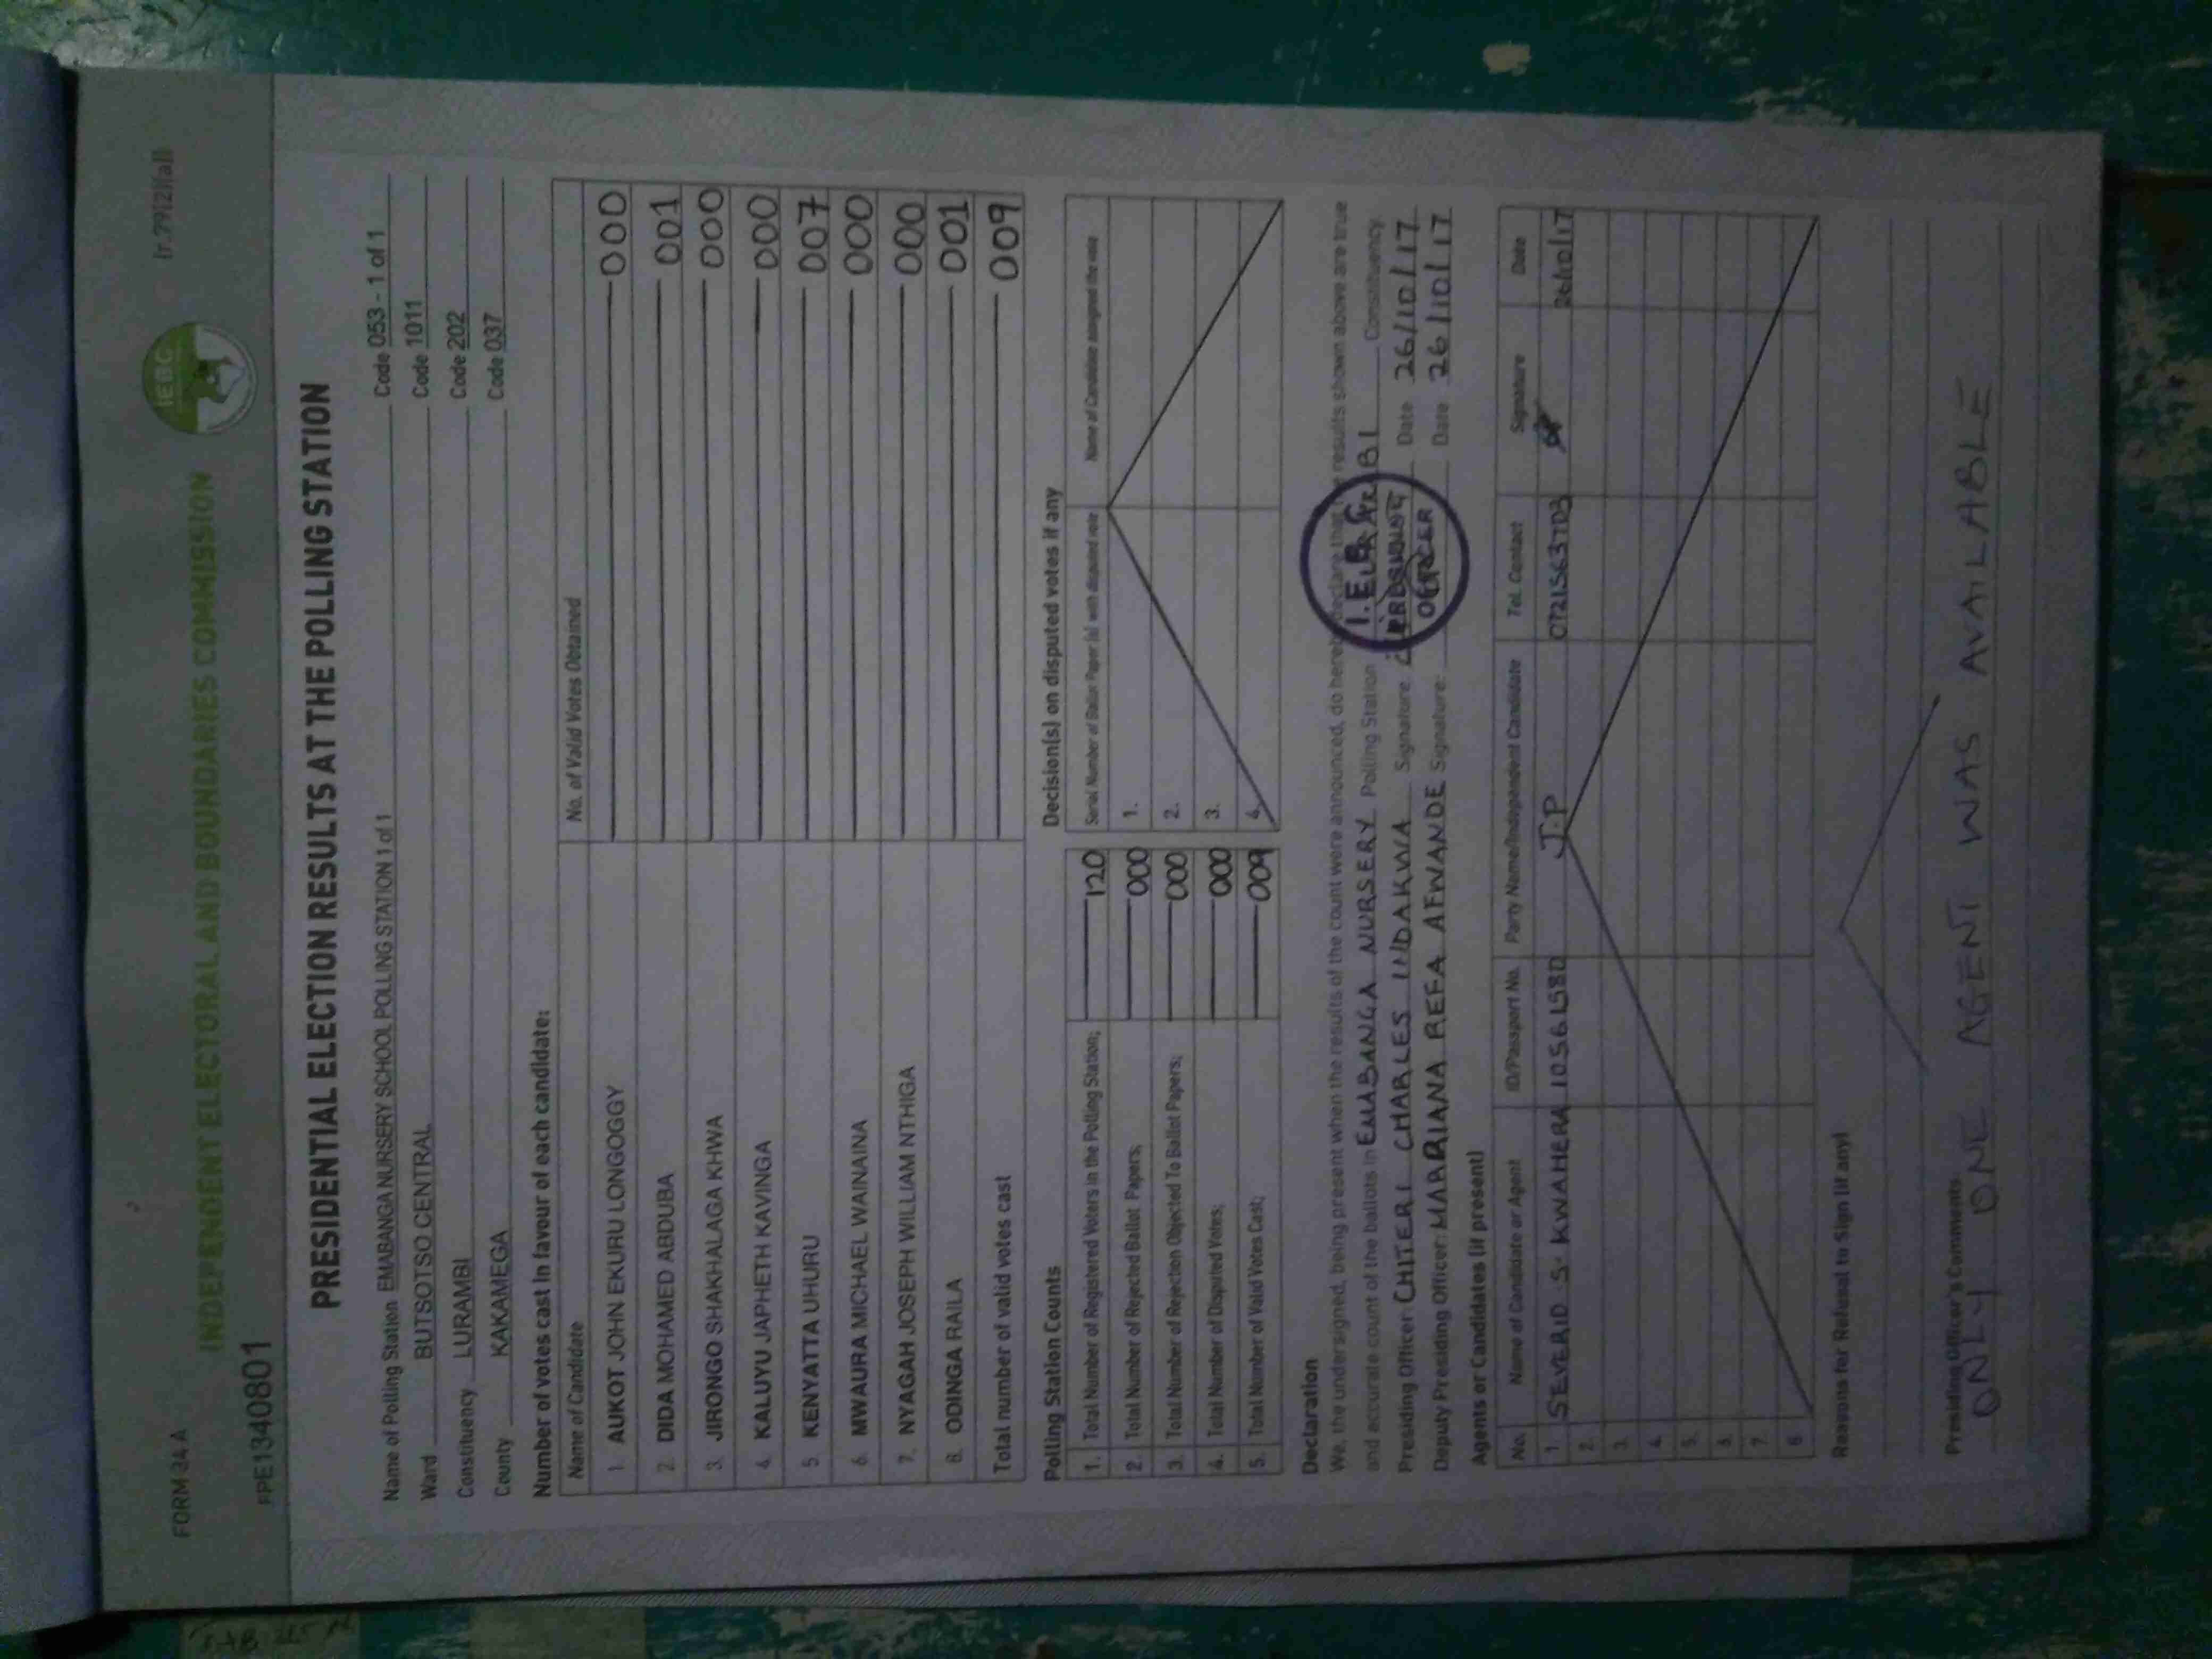 FORM 34 A
(r.79(2)(a))
INDEPENDENT ELECTORAL AND BOUNDARIES COMMISSION
IEBC
PPE1340801
PRESIDENTIAL ELECTION RESULTS AT THE POLLING STATION
Name of Polling Station EMABANGA NURSERY SCHOOL POLLING STATION 1 of 1 Code 053 - 1 of 1
Ward BUTSOTSO CENTRAL Code 1011
Constituency LURAMBI Code 202
County KAKAMEGA Code 037
Number of votes cast in favour of each candidate:
Name of Candidate No. of Valid Votes Obtained
1. AUKOT JOHN EKURU LONGOGGY 000
2. DIDA MOHAMED ABDUBA 001
3. JIRONGO SHAKHALAGA KHWA 000
4. KALUYU JAPHETH KAVINGA 000
5 KENYATTA UHURU 007
6. MWAURA MICHAEL WAINAINA 000
7. NYAGAH JOSEPH WILLIAM NTHIGA 000
8. ODINGA RAILA 001
Total number of valid votes cast 009
Polling Station Counts
1. Total Number of Registered Voters in the Polling Station; 120
2. Total Number of Rejected Ballot Papers; 000
3. Total Number of Rejection Objected To Ballot Papers; 000
4. Total Number of Disputed Votes; 000
5. Total Number of Valid Votes Cast; 009
Decision(s) on disputed votes if any
Serial Number of Ballot Paper (s) with disputed vote Name of Candidate assigned the vote
1.
2.
3.
4.
Declaration
We, the undersigned, being present when the results of the count were announced, do hereby declare that the results shown above are true
and accurate count of the ballots in EMABANGA NURSERY Polling Station LURAMBI Constituency.
Presiding Officer CHITERI CHARLES INDAKWA Signature Date 26/10/17
Deputy Presiding Officer: MARRIANA REFA AFWANDE Signature: Date 26/10/17
I.E.B.C
PRESIDING
OFFICER
Agents or Candidates (if present)
No. Name of Candidate or Agent ID/Passport No. Party Name/Independent Candidate Tel. Contact Signature Date
1 SEVERID S. KWAHERA 10561580 J.P 0721563703 26/10/17
2.
3.
4.
5.
6.
7.
8
Reasons for Refusal to Sign (if any)
Presiding Officer's Comments
ONLY ONE AGENT WAS AVAILABLE